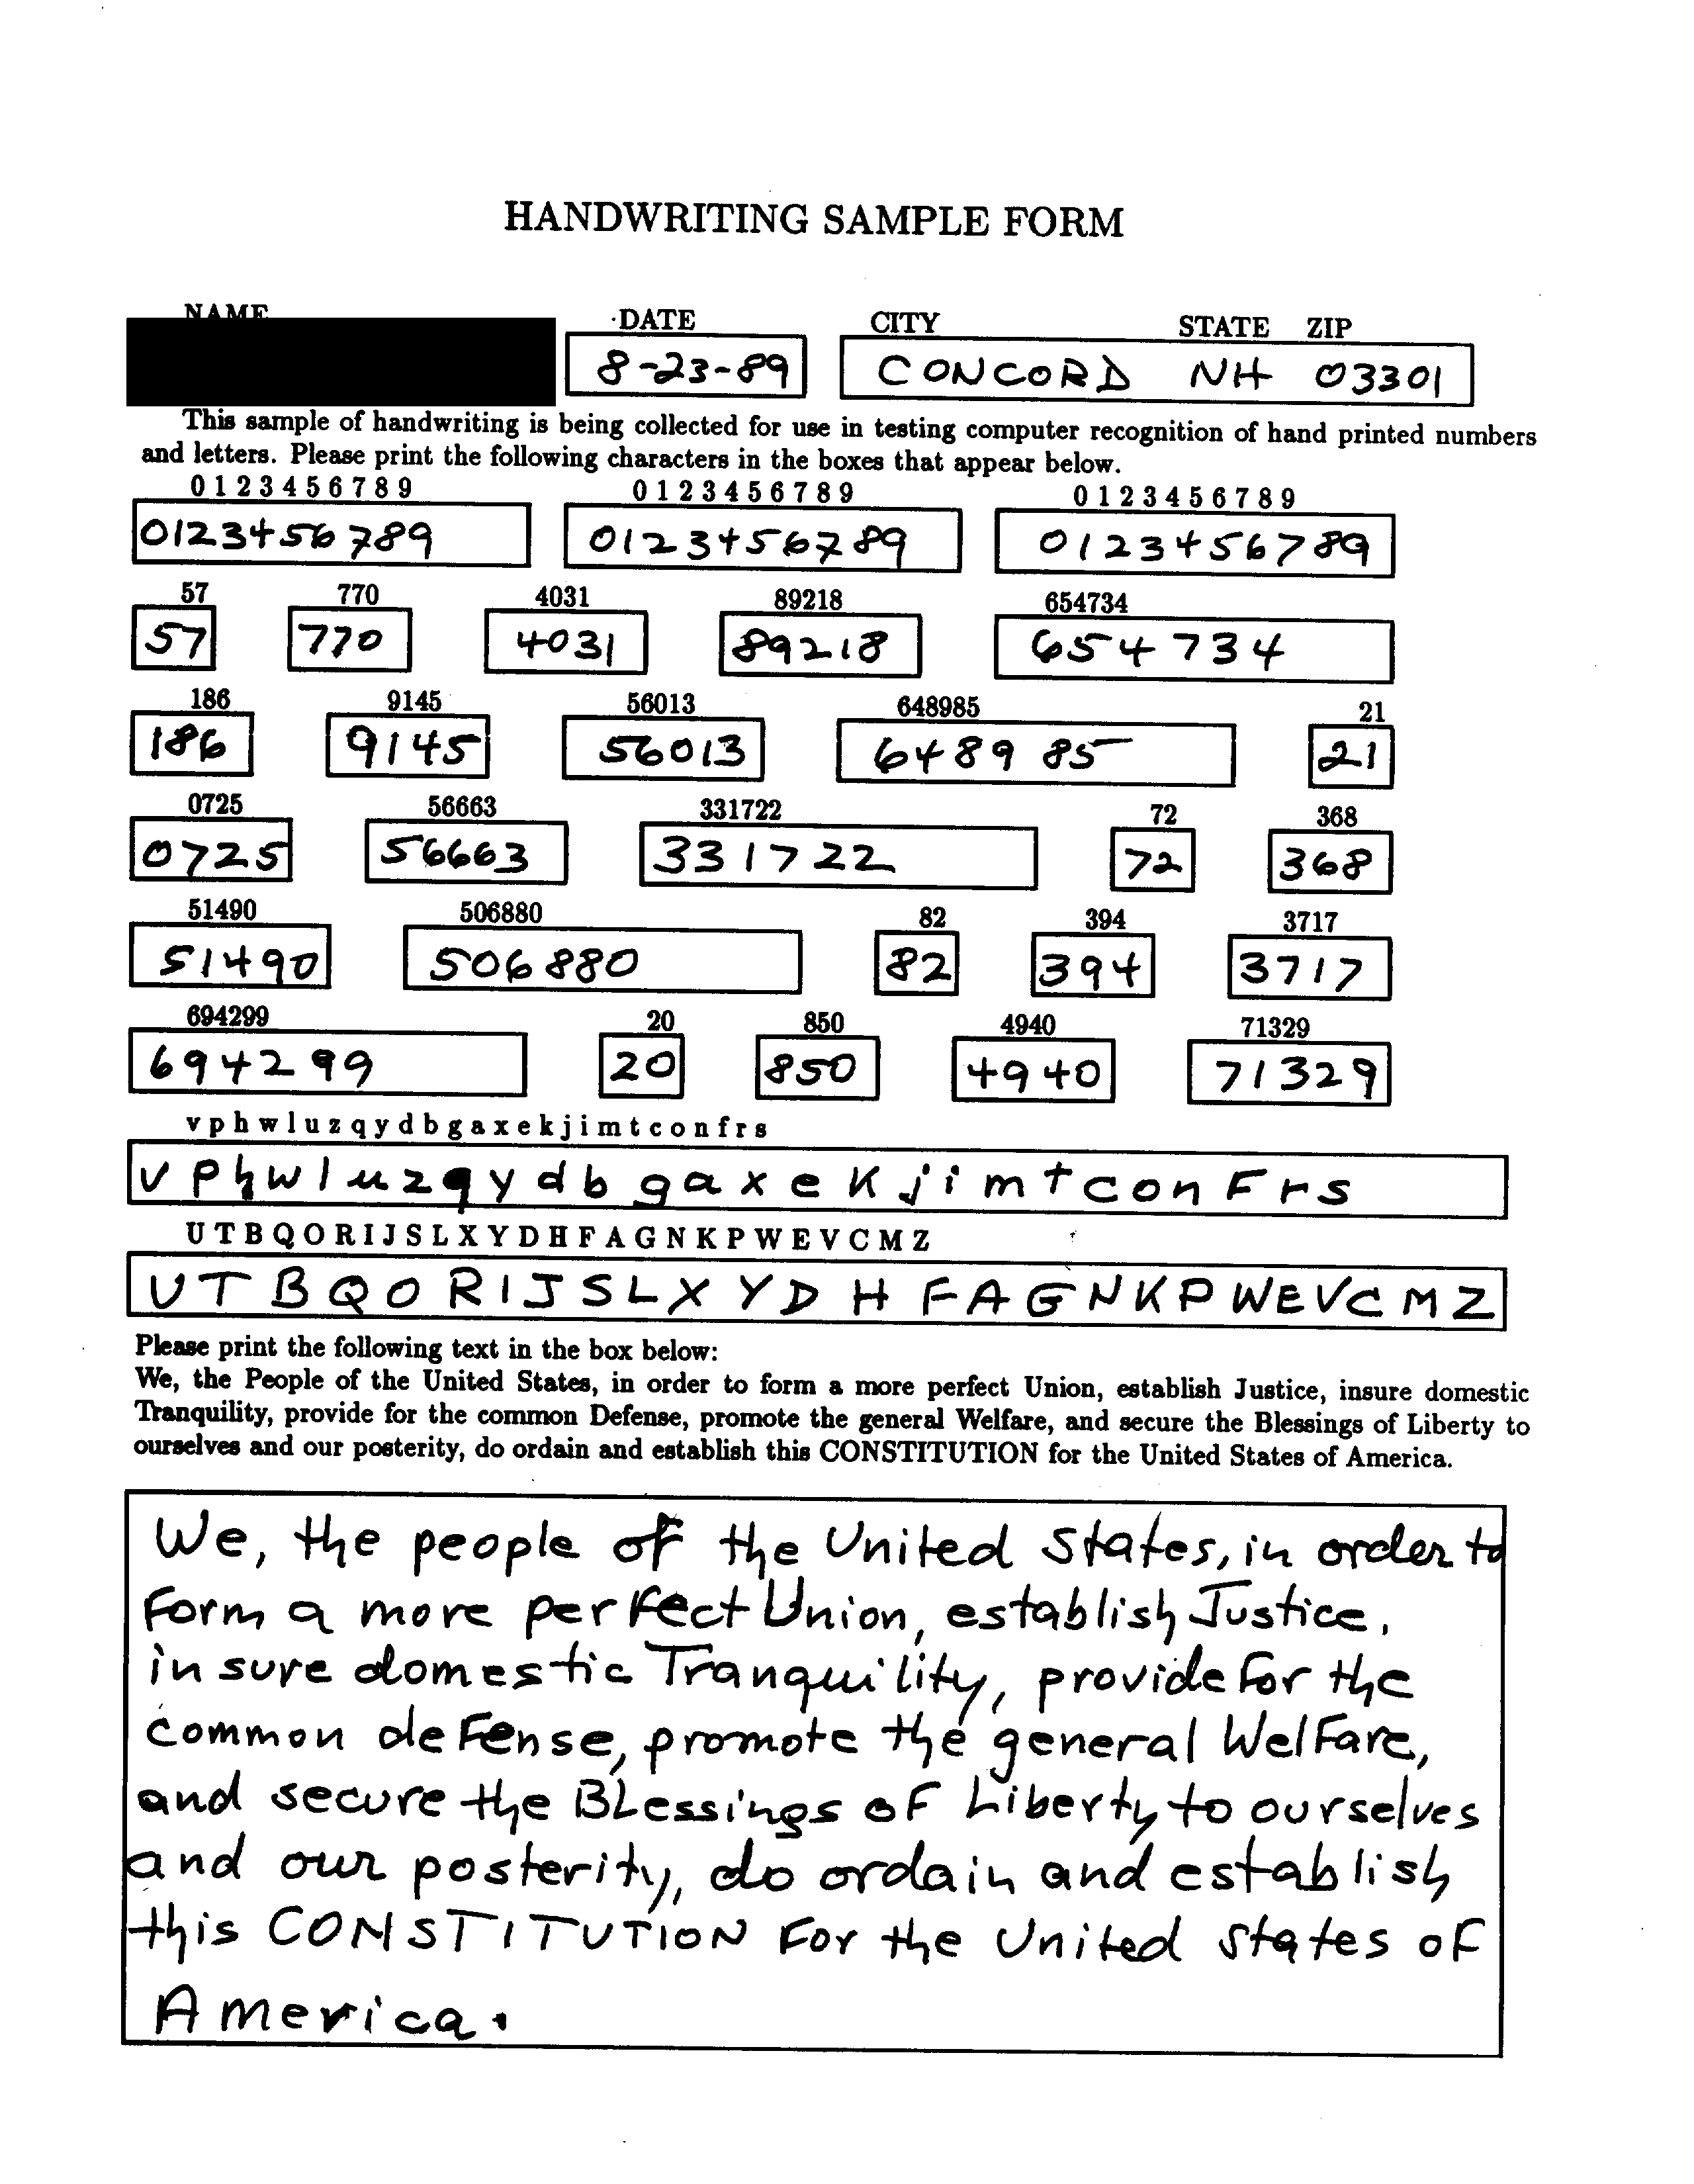 HANDWRITING SAMPLE FORM
NAME DATE CITY STATE ZIP
8-23-89 CONCORD NH 03301
This sample of handwriting is being collected for use in testing computer recognition of hand printed numbers
and letters. Please print the following characters in the boxes that appear below.
0 1 2 3 4 5 6 7 8 9 0 1 2 3 4 5 6 7 8 9 0 1 2 3 4 5 6 7 8 9
0123456789 0123456789 0123456789
57 770 4031 89218 654734
57 770 4031 89218 654734
186 9145 56013 648985 21
186 9145 56013 648985 21
0725 56663 331722 72 368
0725 56663 331722 72 368
51490 506880 82 394 3717
51490 506880 82 394 3717
694299 20 850 4940 71329
694299 20 850 4940 71329
v p h w l u z q y d b g a x e k j i m t c o n f r s
v p h w l u z q y d b g a x e K j i m t c o n F r s
U T B Q O R I J S L X Y D H F A G N K P W E V C M Z
U T B Q O R I J S L X Y D H F A G N K P W E V C M Z
Please print the following text in the box below:
We, the People of the United States, in order to form a more perfect Union, establish Justice, insure domestic
Tranquility, provide for the common Defense, promote the general Welfare, and secure the Blessings of Liberty to
ourselves and our posterity, do ordain and establish this CONSTITUTION for the United States of America.
We, the people of the United States, in order to
Form a more perfect Union, establish Justice,
insure domestic Tranquility, provide For the
common deFense, promote the general WelFare,
and secure the BLessings oF Liberty to ourselves
and our posterity, do ordain and establish
this CONSTITUTION For the United States oF
America.